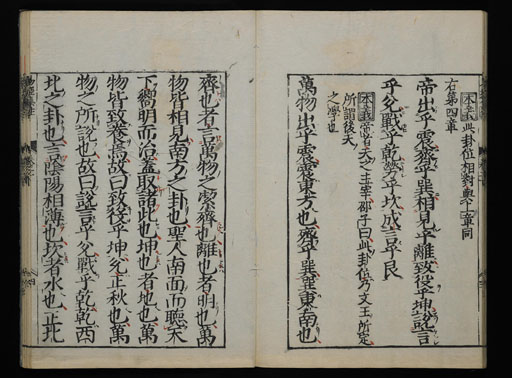 本義此卦位相對與上章同
右第四章
帝出乎震齊乎巽相見乎離致役乎坤說言
乎兌戰乎乾勞乎坎成言乎艮
本義帝者天之主宰邵子曰此卦位乃文王所定
所謂後天
之學也
萬物出乎震震東方也齊乎巽巽東南也
齊也者言萬物之潔齊也離也者明也萬
物皆相見南方之卦也聖人南面而聽天
下嚮明而治蓋取諸此也坤也者地也萬
物皆致養焉故曰致役乎坤兌正秋也萬
物之所說也故曰說言乎兌戰乎乾乾西
北之卦也言陰陽相薄也坎者水也正北